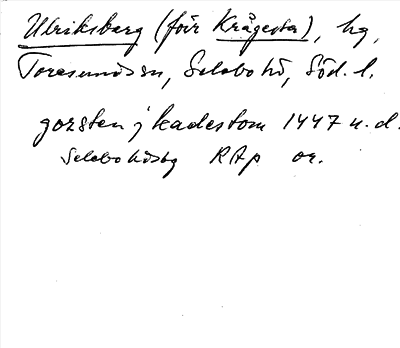 Ulriksberg (förr Krågesta), hg,
Toresunds sn, Selebo hd, Söd. l.
gorsten j kadestom 1447 u. d.
Selebo hdsbg RAp or.